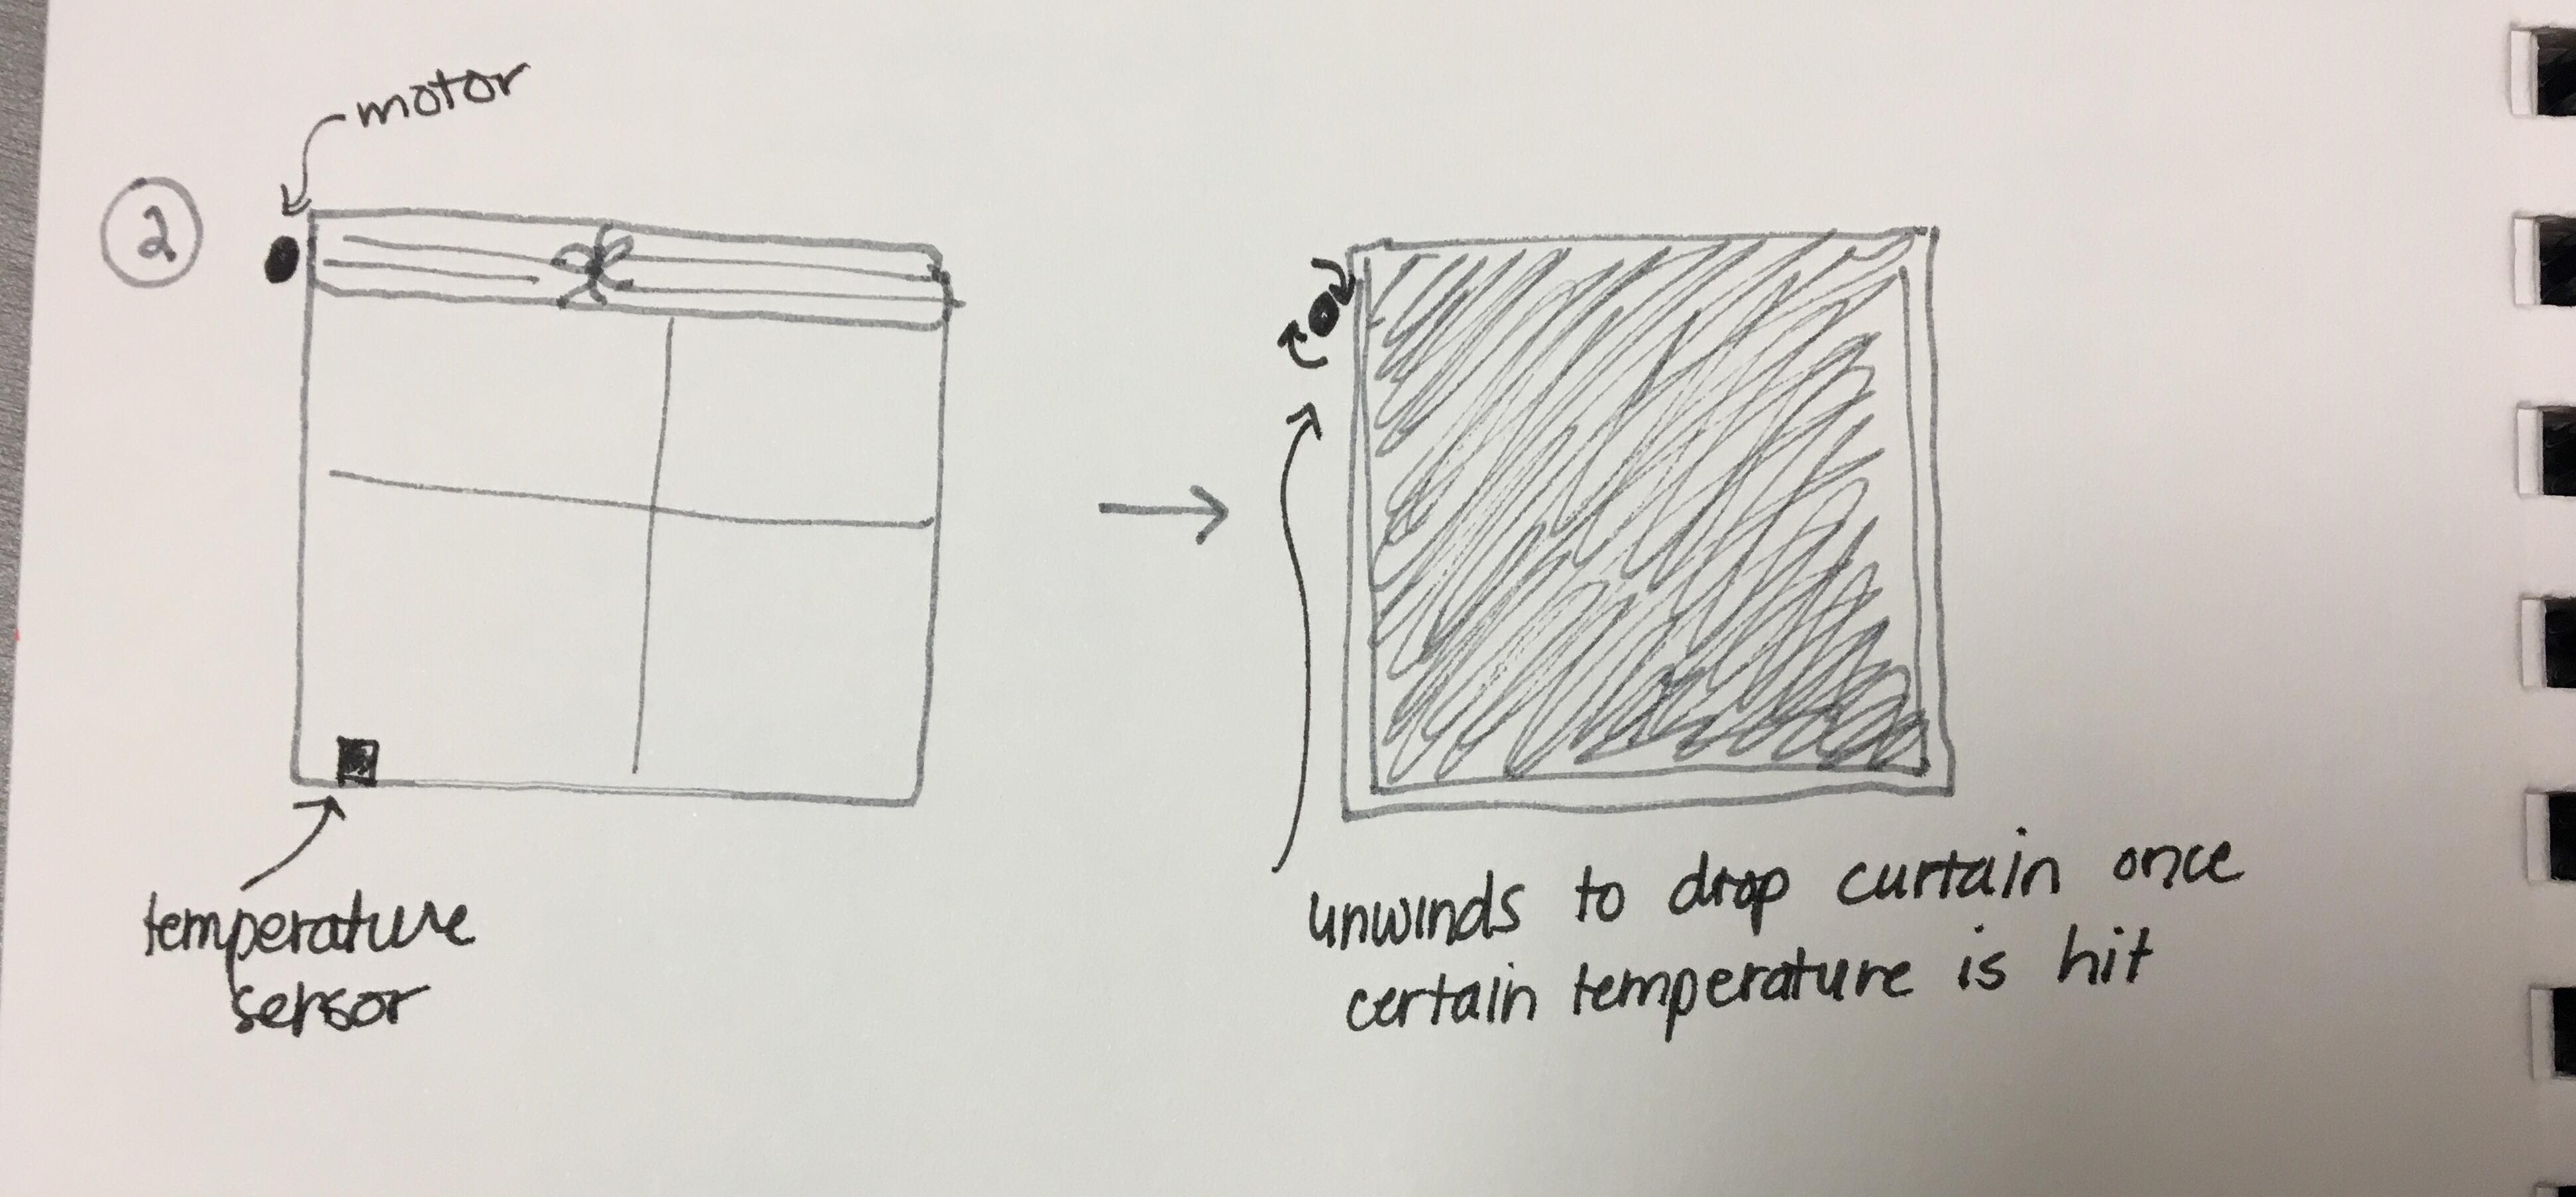 motor
2
temperature
sensor
unwinds to drop curtain once
certain temperature is hit